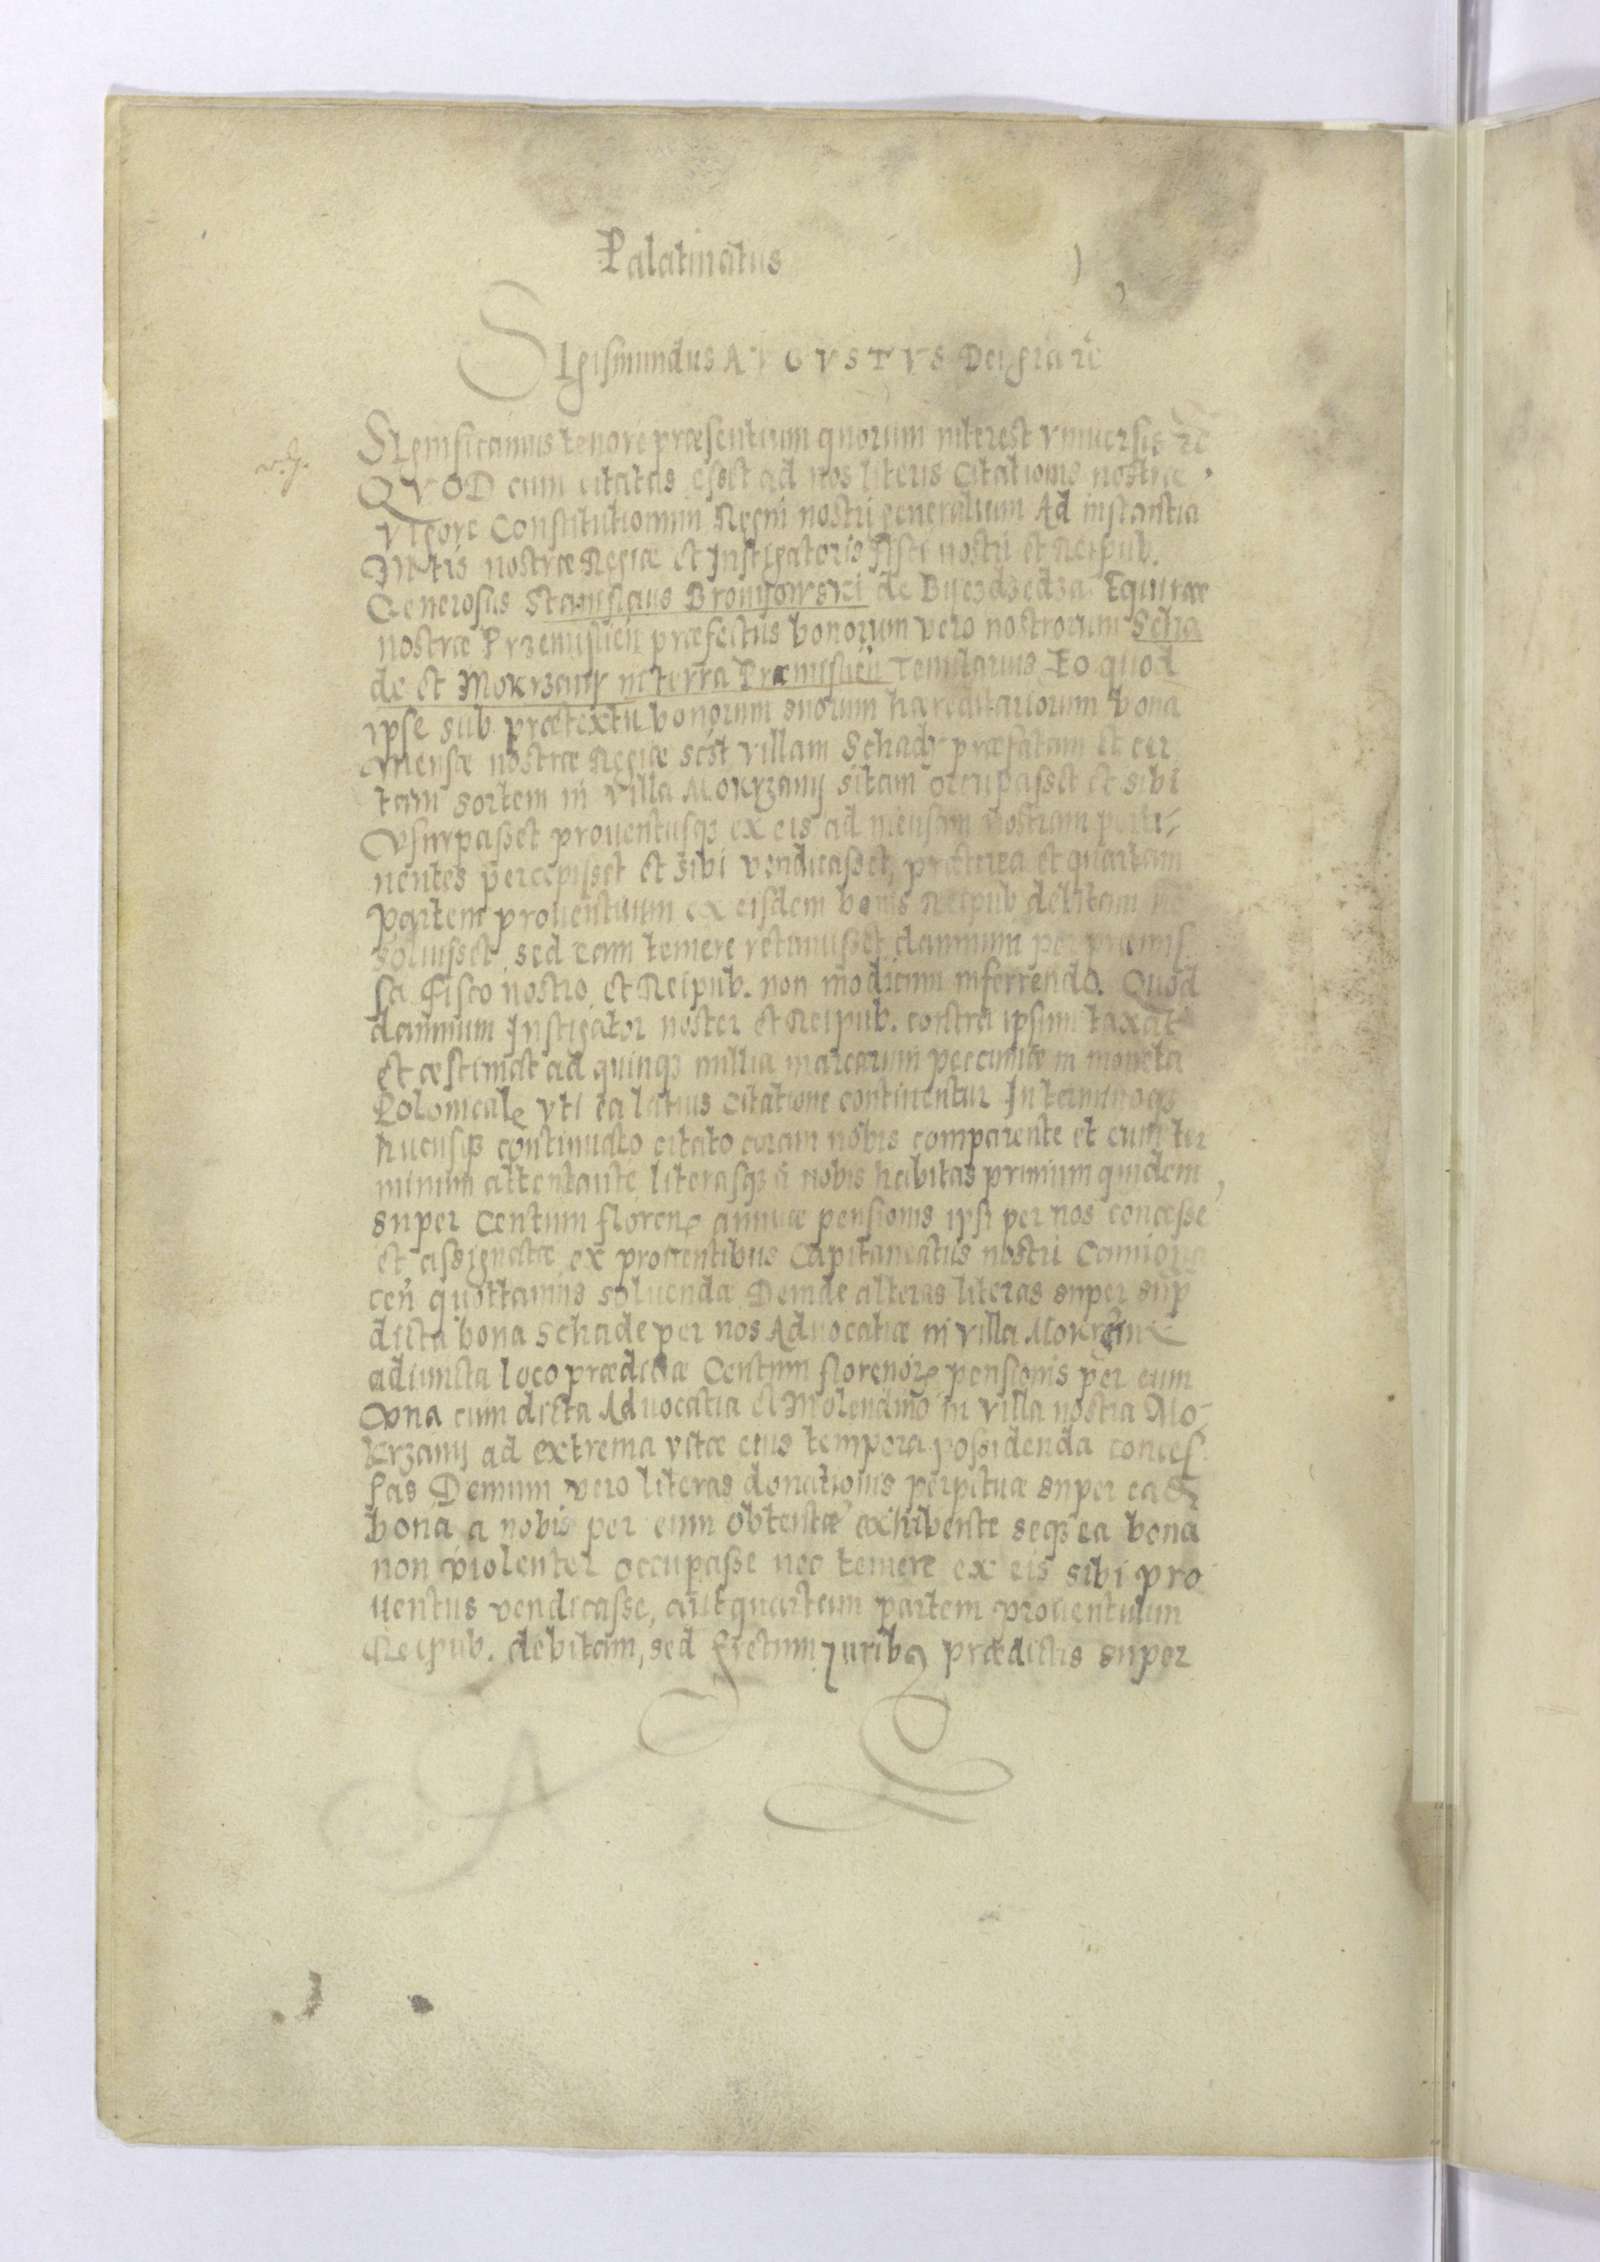 Palatinatus
SIgismundus AVGVSTVS Dei gra rc
SIgnificamus tenore præsentium quorum interest vniuersis rc
QVOD cum citatus esset ad nos literis Citationis nostræ
vigore Constitutionum Regni nostri generalium Ad instantia
Mtis nostræ Regiæ et Instigatoris fisci nostri et Reipub.
Generosus Stanislaus Bronijowski de Byezdzedza Equitæ
nostræ Przemislien præfectus bonorum vero nostrorum Scha
de et Mokrzanij in terra Præmislien Tenutarius Eo quod
ipse sub prætextu bonorum suorum hæreditariorum bona
Mensæ nostræ Regiæ scit villam Schady præfatam et cer
tam sortem in villa Mokrzanij sitam occupasset et sibi
Vsurpasset prouentusq ex eis ad mensam nostram perti-
nentes percepisset et sibi vendicasset, præterea et quartam
partem prouentuum ex eisdem bonis Reipub debitam no
soluisset, sed eam temere retinuisset damnum per præmis
sa fisco nostro et Reipub. non modicum inferrendo. Quod
damnum Instigator noster et Reipub. contra ipsum taxat
et æstimat ad quinq millia marcarum peccuniæ in moneta
Polonicale vti ea latius Citatione continentur In terminoq
hucusq continuato citato coram nobis comparente et eum ter
minum attentante literasq a nobis habitas primum quidem
super Centum floren annuæ pensionis ipsi per nos concesse
et assignatæ ex prouentibus Capitaneatus nostri Camiona
cen quottannis soluenda Deinde alteras literas super sup
dicta bona Schade per nos Aduocatiæ in villa Mokrzani
adiuncta loco prædictæ Centum florenor pensionis per eum
Vna cum dicta Aduocatia et Molendino in villa nostra Mo-
krzanij ad extrema vitæ eius tempora possidenda conces
sas Demum vero literas donationis perpetuæ super ead
bona a nobis per eum obtentæ exhibente seq ea bona
non violenter occupasse nec temere ex eis sibi pro
uentus vendicasse, aut quartam partem prouentuum
Reipub. debitam, sed fretum iurib prædictis super